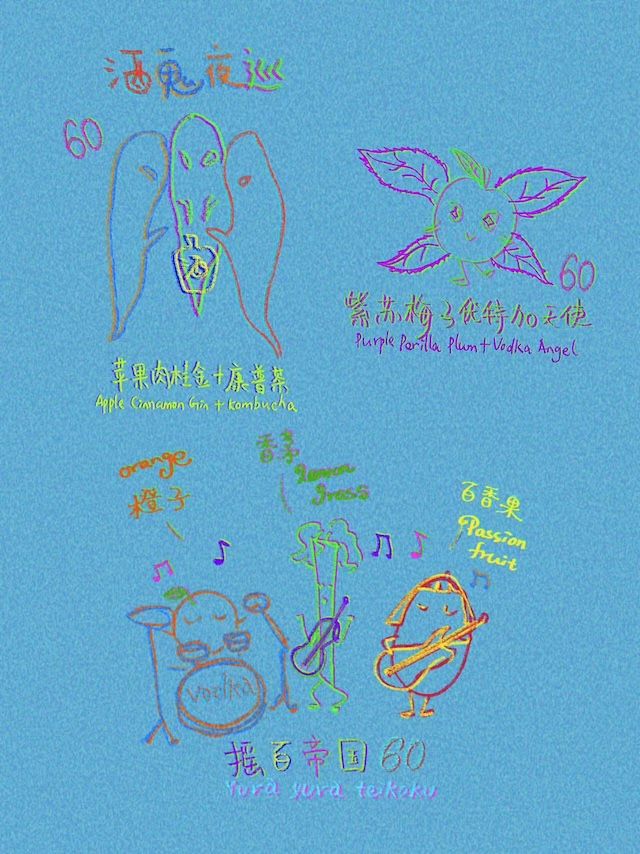 酒鬼夜巡
60
苹果肉桂金+康普茶
Apple Cinnamon Gin + Kombucha
60
紫苏梅子伏特加天使
Purple Perilla Plum + Vodka Angel
orange
橙子
香茅
lemon
grass
百香果
Passion
fruit
vodka
摇百帝国 60
Yura yura teikoku